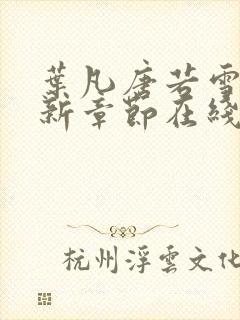 葉凡唐若雪
新章節在綫
杭州浮雲文化